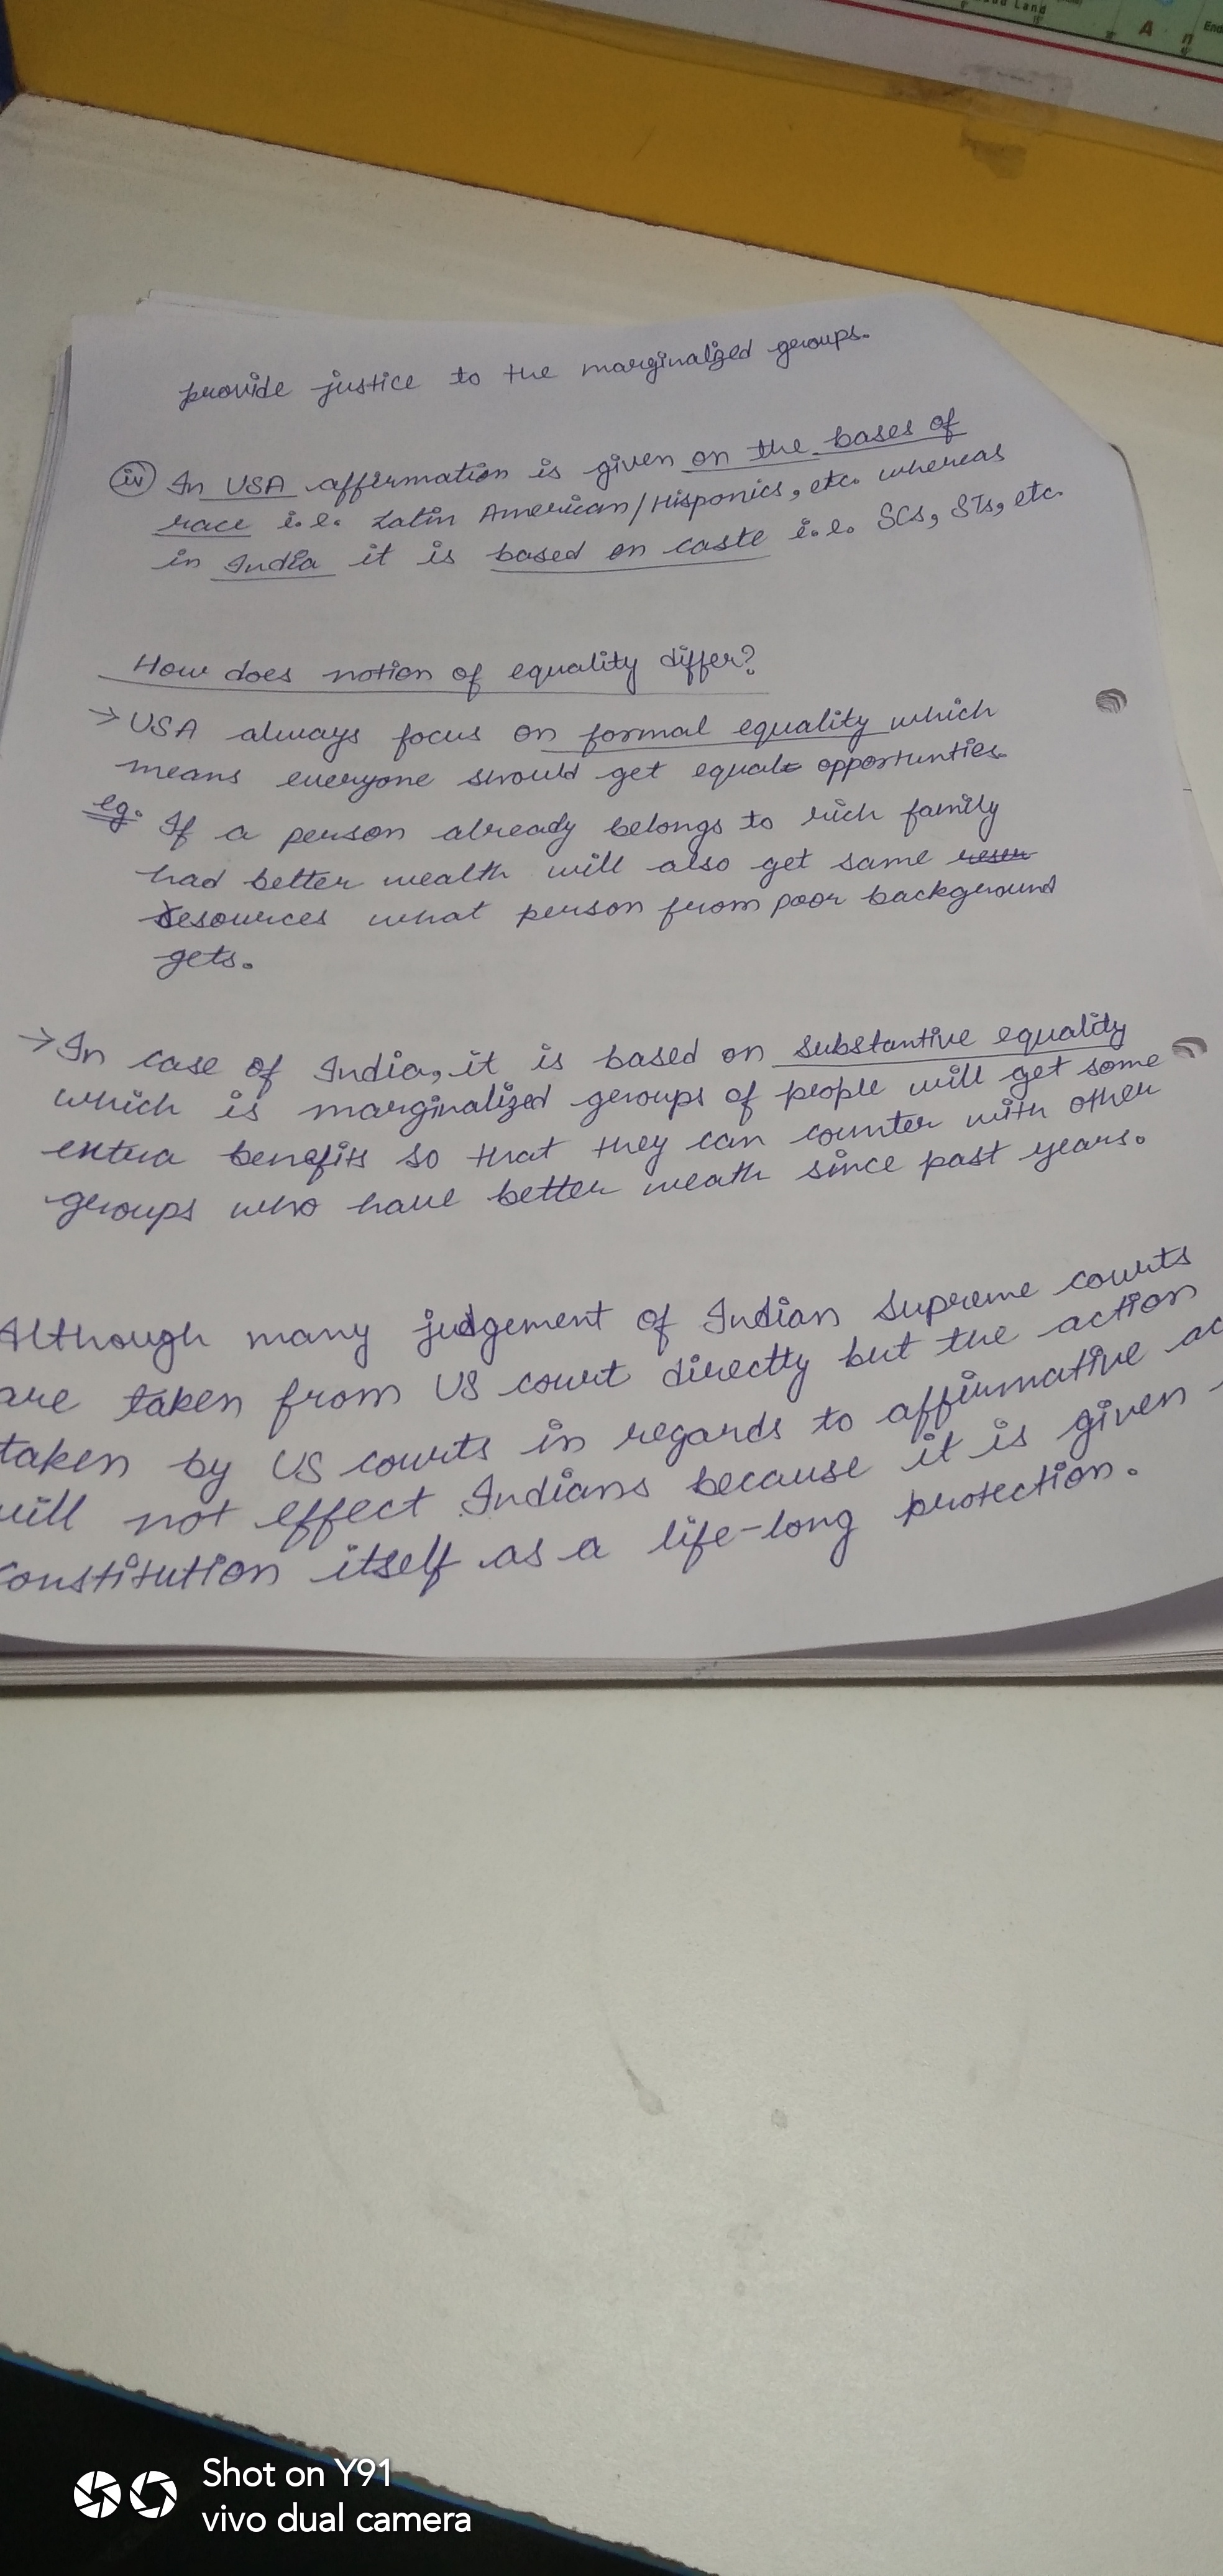 Land
A
n
End
provide justice to the marginalized groups.
(iv) In USA affirmation is given on the bases of
race i.e. Latin American/Hisponics, etc. whereas
in India it is based on caste i.e. SCs, STs, etc.
How does notion of equality differ?
→ USA always focus on formal equality which
means everyone should get equal opportunties.
eg. If a person already belongs to rich family
had better wealth will also get same
resources what person from poor background
gets.
→ In case of India, it is based on substantive equality
which is marginalized groups of people will get some
extra benefits so that they can counter with other
groups who have better weath since past years.
Although many judgement of Indian Supreme courts
are taken from US court directly but the action
taken by US courts in regards to affirmative ac
will not effect Indians because it is given
constitution itself as a life-long protection.
Shot on Y91
vivo dual camera